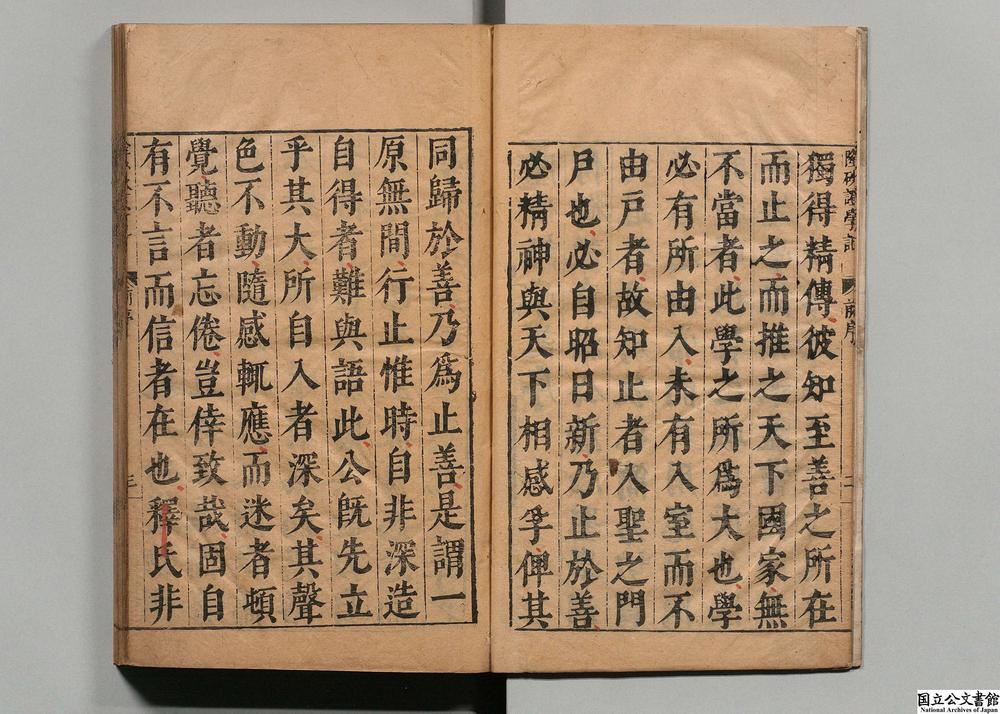 獨得精傳彼知至善之所在
而止之而推之天下國家無
不當者此學之所爲大也學
必有所由入未有入室而不
由戸者故知止者入聖之門
戸也必自昭日新乃止於善
必精神與天下相感孚俾其
同歸於善乃爲止善是謂一
原無間行止惟時自非深造
自得者難與語此公旣先立
乎其大所自入者深矣其聲
色不動隨感輒應而迷者頓
覺聽者忘倦豈倖致哉固自
有不言而信者在也釋氏非
前序
二
三
国立公文書館
National Archives of Japan